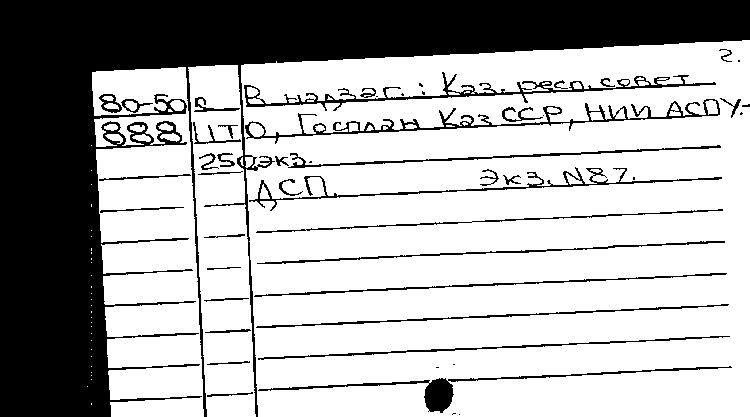 2.
80-50 В надзаг.: Каз. респ. совет
888 НТО, Госплан Каз ССР, НИИ АСПУ.-
250 экз.
ДСП. Экз. N87.